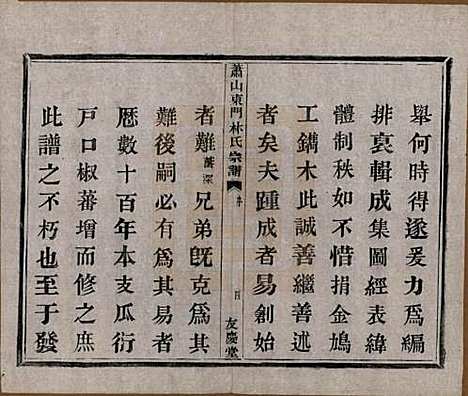 舉何時得遂爰力爲編
排裒輯成集圖經表緯
體制秩如不惜捐金鳩
工鐫木此誠善繼善述
者矣夫踵成者易創始
蕭山東門林氏宗譜
序
友慶堂
者難 兄弟既克爲其
難後嗣必有爲其易者
厯數十百年本支瓜衍
戶口椒蕃增而修之庶
此譜之不朽也至于發